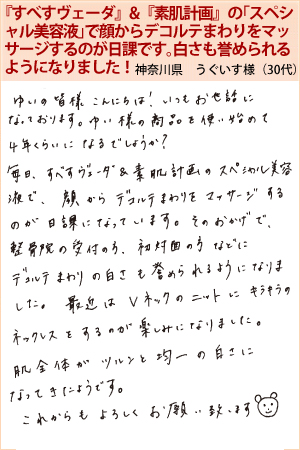 『すべすべヴェーダ』&『素肌計画』の「スペシ
ャル美容液」で顔からデコルテまわりをマッ
サージするのが日課です。白さも誉められる
ようになりました! 神奈川県　うぐいす様（30代）
ゆいの皆様 こんにちは! いつもお世話に
なっております。ゆい様の商品を使い始めて
4年くらいになるでしょうか?
毎日、すべすヴェーダ&素肌計画のスペシャル美容
液で、顔からデコルテまわりをマッサージする
のが日課になっています。そのおかげで、
整骨院の受付の方、初対面の方などに
デコルテまわりの白さも誉められるようになりま
した。最近はVネックのニットにキラキラの
ネックレスをするのが楽しみになりました。
肌全体がツルンと均一の白さに
なってきたようです。
これからもよろしくお願い致します